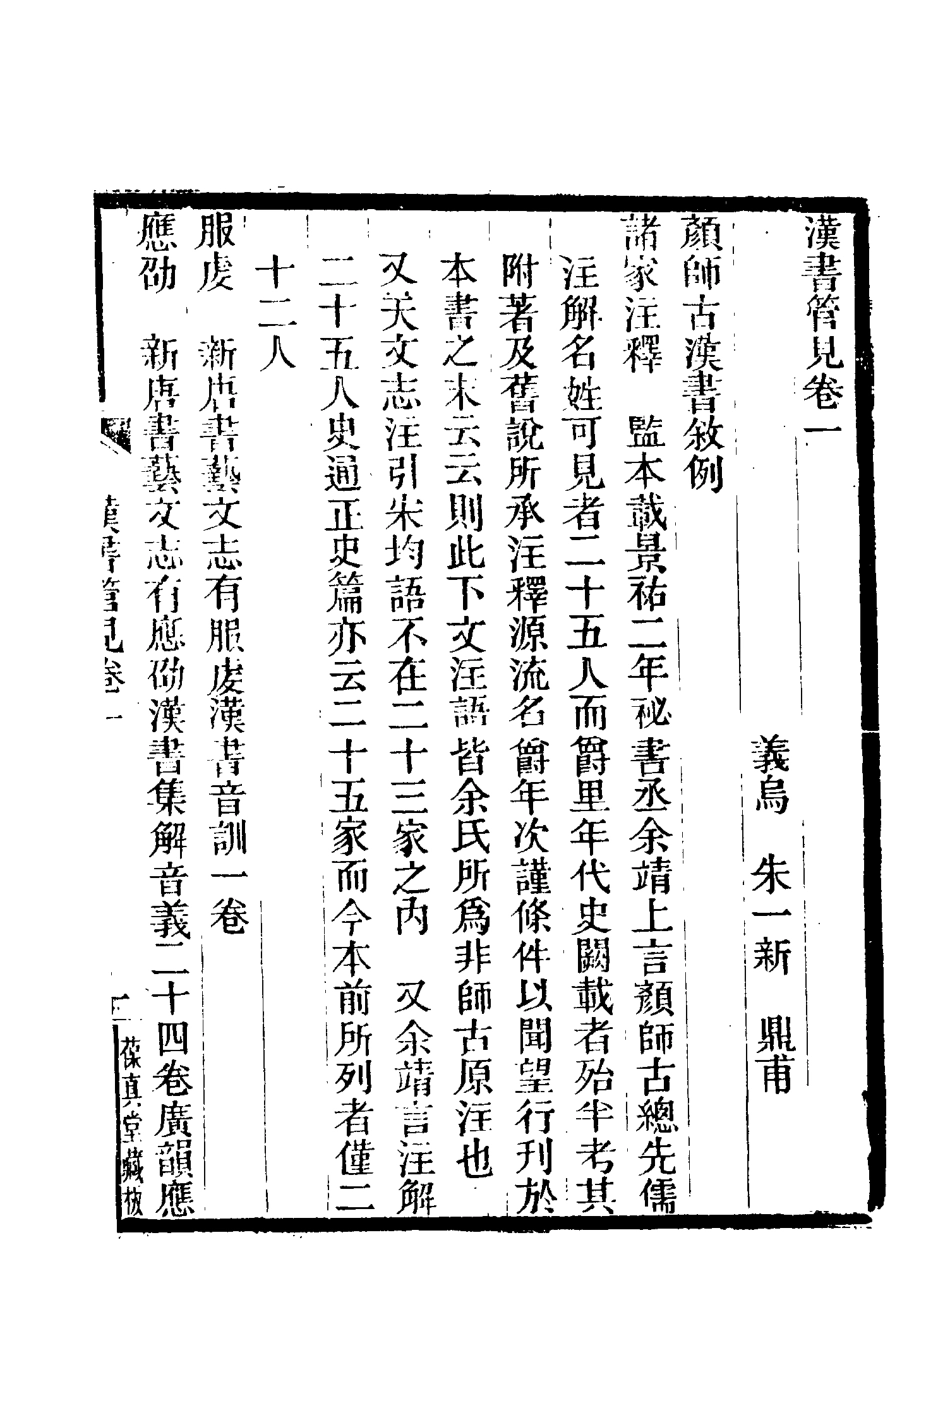 漢書管見卷一
義烏　朱一新　鼎甫
顏師古漢書敘例
諸家注釋　監本載景祐二年祕書丞余靖上言顏師古總先儒
注解名姓可見者二十五人而爵里年代史闕載者殆半考其
附著及舊說所承注釋源流名爵年次謹條件以聞望行刊於
本書之末云云則此下文注語皆余氏所爲非師古原注也
又天文志注引宋均語不在二十三家之內　又余靖言注解
二十五人史通正史篇亦云二十五家而今本前所列者僅二
十二人
服虔　新唐書藝文志有服虔漢書音訓一卷
應劭　新唐書藝文志有應劭漢書集解音義二十四卷廣韻應
漢書管見卷一
一
葆真堂藏板